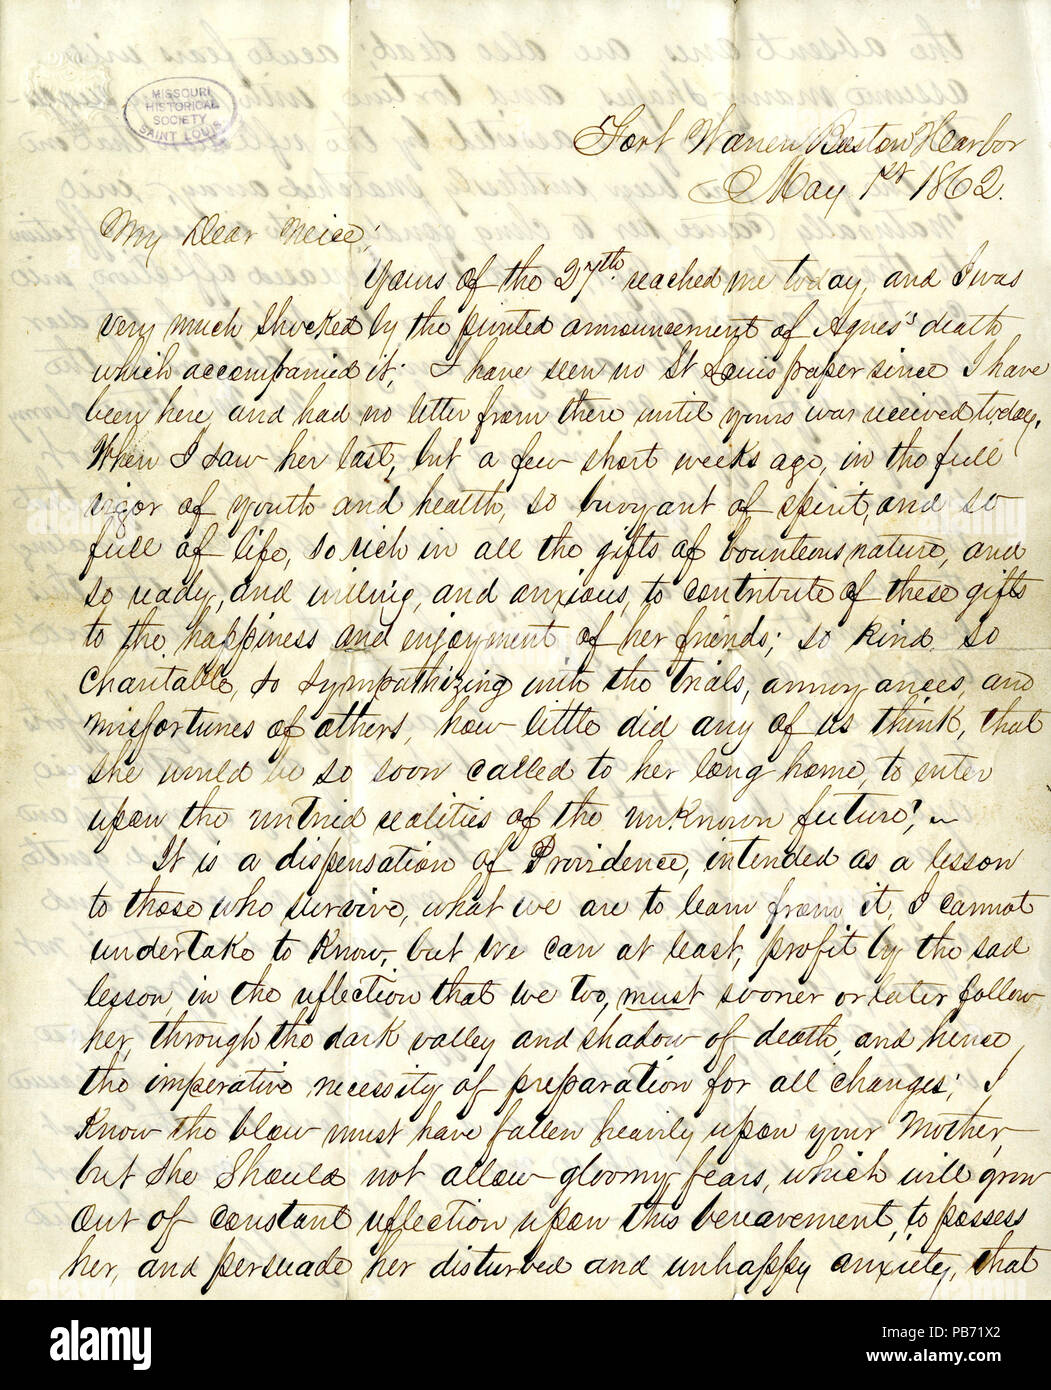 MISSOURI
HISTORICAL
SOCIETY
SAINT LOUIS
Fort Warren, Boston Harbor
May 1st 1862.
My Dear Neice;
Yours of the 27th reached me today, and I was
very much shocked by the printed announcement of Agnes's death
which accompanied it; I have seen no St Louis paper since I have
been here, and had no letter from there until yours was received today.
When I saw her last, but a few short weeks ago, in the full
vigor of youth and health, so buoyant of spirit, and so
full of life, so rich in all the gifts of bounteous nature, and
so ready, and willing, and anxious, to contribute of these gifts
to the happiness and enjoyment of her friends; so kind, so
charitable, so sympathizing with the trials, annoyances, and
misfortunes of others, how little did any of us think, that
she would be so soon called to her long home, to enter
upon the untried realities of the unknown future!
It is a dispensation of Providence, intended as a lesson
to those who survive, what we are to learn from it, I cannot
undertake to know, but we can at least, profit by the sad
lesson, in the reflection that we too, must sooner or later follow
her, through the dark valley and shadow of death, and hence,
the imperative necessity of preparation for all changes; I
know the blow must have fallen heavily upon your Mother,
but she should not allow gloomy fears, which will grow
out of constant reflection upon this bereavement, to possess
her, and persuade her disturbed and unhappy anxiety, that
alamy
Image ID: PB71X2
www.alamy.com